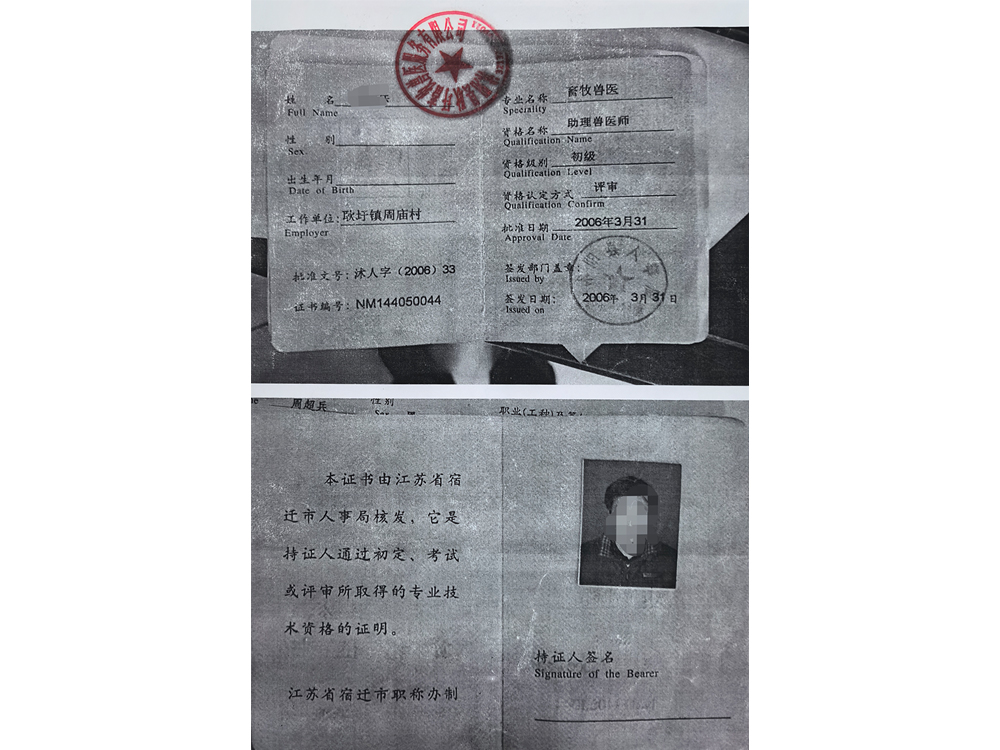 姓 名
Full Name
性 别
Sex
出生年月
Date of Birth
工作单位:耿圩镇周庙村
Employer
批准文号:沐人字(2006)33
证书编号:NM144050044
专业名称 畜牧兽医
Speciality
资格名称 助理兽医师
Qualification Name
资格级别 初级
Qualification Level
资格认定方式 评审
Qualification Confirm
批准日期 2006年3月31
Approval Date
签发部门盖章:
Issued by
签发日期: 2006年 3月 31日
Issued on
周超兵
性别
Sex
职业(工种)及等
本证书由江苏省宿
迁市人事局核发,它是
持证人通过初定、考试
或评审所取得的专业技
术资格的证明。
江苏省宿迁市职称办制
持证人签名
Signature of the Bearer